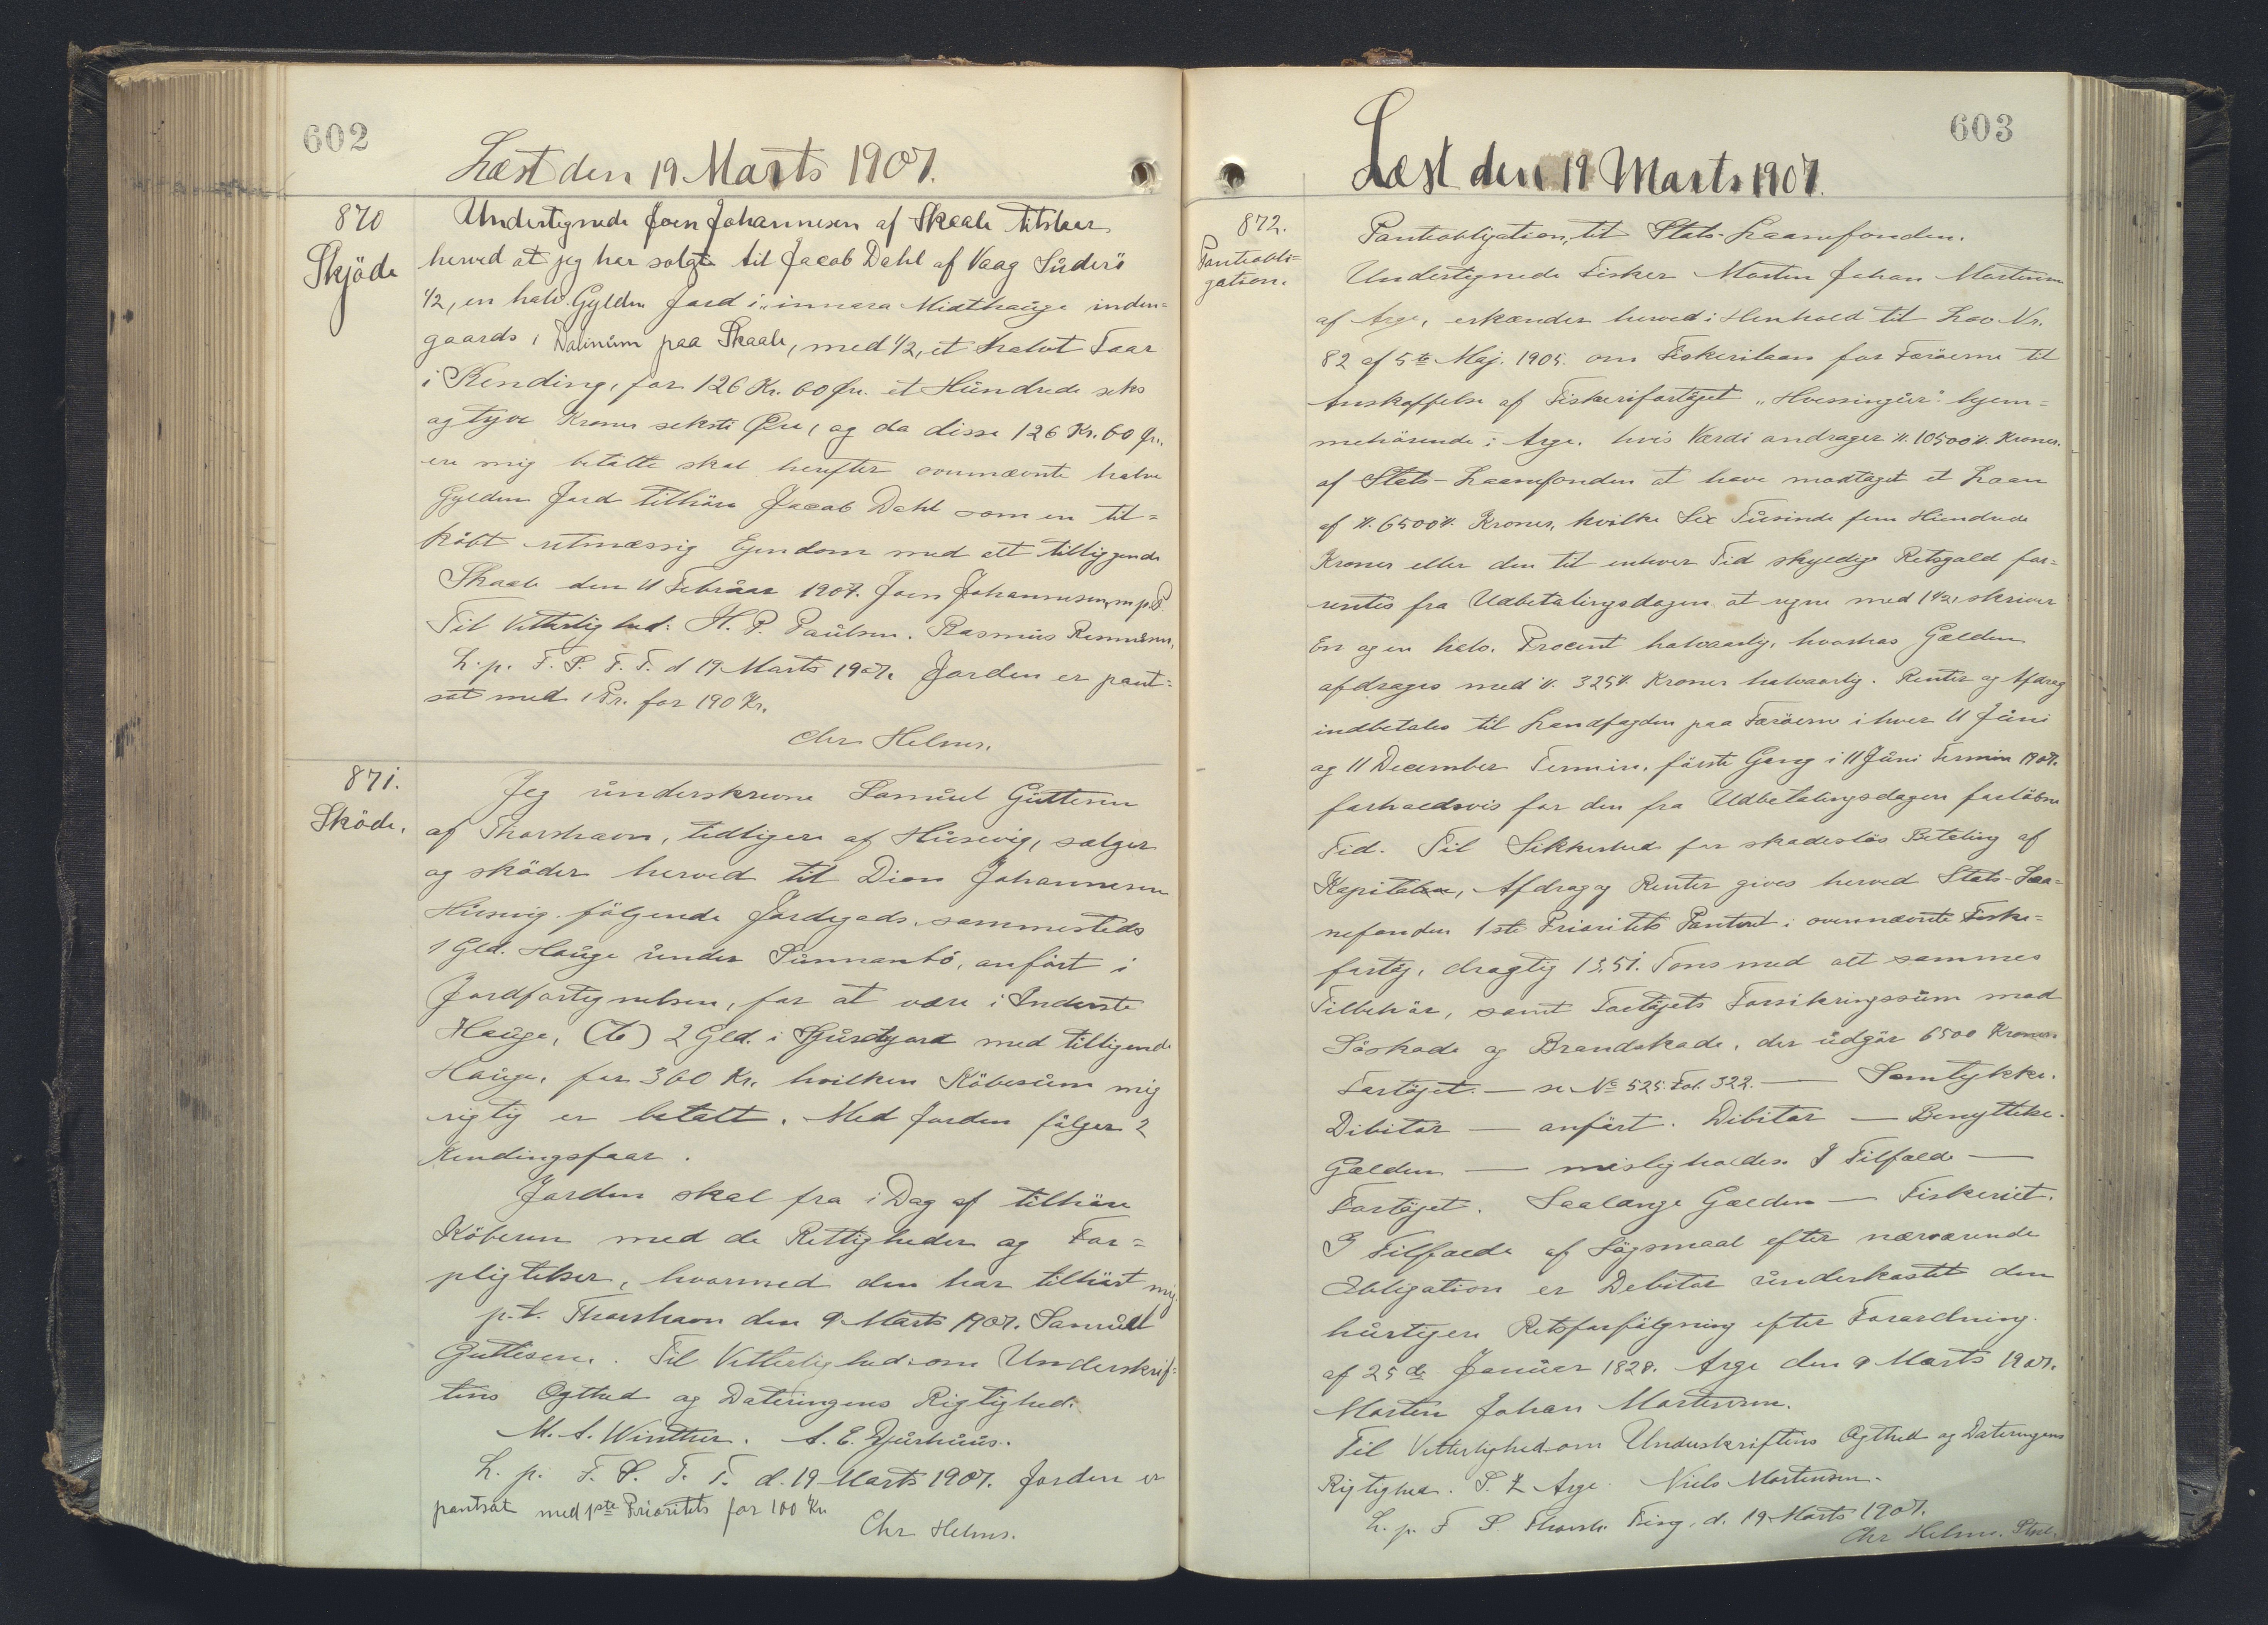 602
Læst den 19 Marts 1907.
870
Skjöde
Undertegnede Joen Johannesen af Skaale tilstaar
herved at jeg har solgt til Jacob Dahl af Vaag Süderö
1/2, en halv Gylden Jord i „innara Midthauge inden=
gaards i Dalinum paa Skaale, med 1/2, et halvt Faar
i Kending, for 126 Kr. 60 Øre. et Hundrede seks
og tyve Kroner seksti Øre, og da disse 126 Kr. 60 Ør.
ere mig betalte skal herefter ovennævnte halve
Gylden Jord tilhöre Jacob Dahl som en til=
köbt retmæssig Ejendom med alt tilliggende
Skaale den 11 Februar 1907. Joen Johannesen, m.p.P.
Til Vitterlighed: H. P. Paulsen. Rasmus Rasmussen,
L. p. F. S. T. T. d 19 Marts 1907. Jorden er pant=
sat med 1 Pr. for 190 Kr.
Chr Helms.
871.
Sköde.
Jeg underskrevne Samuel Guttesen
af Thorshavn, tidligere af Husevig, sælger
og sköder herved til Dion Johannesen
Husevig følgende Jordegods sammesteds
1 Gld. Hauge under Sunnanbö, anfört i
Jordfortegnelsen, for at være i Inderste
Hauge, (b) 2 Gld. i med tilligende
Hauge, for 360 Kr. hvilken Köbesum mig
rigtig er betalt. Med Jorden fölger 2
Kendingsfaar.
Jorden skal fra i Dag af tilhöre
Köberen med de Rettigheder og For=
pligtelser, hvormed den har tilhört mig.
p.t. Thorshavn den 9 Marts 1907. Samuel
Guttesen. Til Vitterlighed om Underskrif=
tens Ægthed og Dateringens Rigtighed.
M. A. Winther. A. E. Djurhuus.
L. p. F. S. T. T. d. 19 Marts 1907. Jorden er
pantsat med 1ste Prioritets for 100 Kr
Chr Helms.
603
Læst den 19 Marts 1907.
872.
Pantobli=
gation.
Pantobligation, til Stats-Laanefonden.
Undertegnede Fisker Morten Johan Mortensen
af Arge, erkænder herved i Henhold til Lov Nr.
82 af 5te Maj. 1905. om Fiskerilaan for Færöerne til
Anskaffelse af Fiskerifartöjet „Hvessingur“ hjem=
mehörende i Arge. hvis Værdi andrager //. 10500 //. Kroner.
af Stats-Laanefonden at have modtaget et Laan
af //. 6500 //. Kroner, hvilke Sex Tusinde fem Hundrede
Kroner eller den til enhver Tid skyldige Restgæld for=
rentes fra Udbetalingsdagen at regne med 1 1/2, skriver
En og en halv. Procent halvaarlig, hvorhos Gælden
afdrages med //. 325 //. Kroner halvaarlig. Renter og Afdrag
indbetales til Landfogden paa Færöerne i hver 11 Juni
og 11 December Termin. förste Gang i 11 Juni Termin 1907.
forholdsvis for den fra Udbetalingsdagen forløbne
Tid. Til Sikkerhed for skadeslös Betaling af
Kapitalen, Afdrag og Renter gives herved Stats-Laa=
nefonden 1ste Prioritets Panteret i ovennævnte Fiske=
fartöj, drægtig 13,51. Tons med alt sammes
Tilbehör, samt Fartöjets Forsikringssum mod
Söskade og Brandskade, der udgör 6500 Kroner
Fartöjet. — se No 525. Fol. 322. — Samtykke.
Debitor — anfört. Debitor — Benyttelse.
Gælden — misligholdes. I Tilfælde —
Fartöjet. Saalænge Gælden — Fiskeriet.
I Tilfælde af Sögsmaal efter nærværende
Obligation er Debitor underkastet den
hurtigere Retsforfölgning efter Forordning.
af 25de Januar 1828. Arge den 9 Marts 1907.
Morten Johan Mortensen.
Til Vitterlighed om Underskriftens Ægthed og Dateringens
Rigtighed. Arge. Niels Mortensen.
L. p. F S. Thorsh. Ting, d. 19 Marts 1907.
Chr Helms.